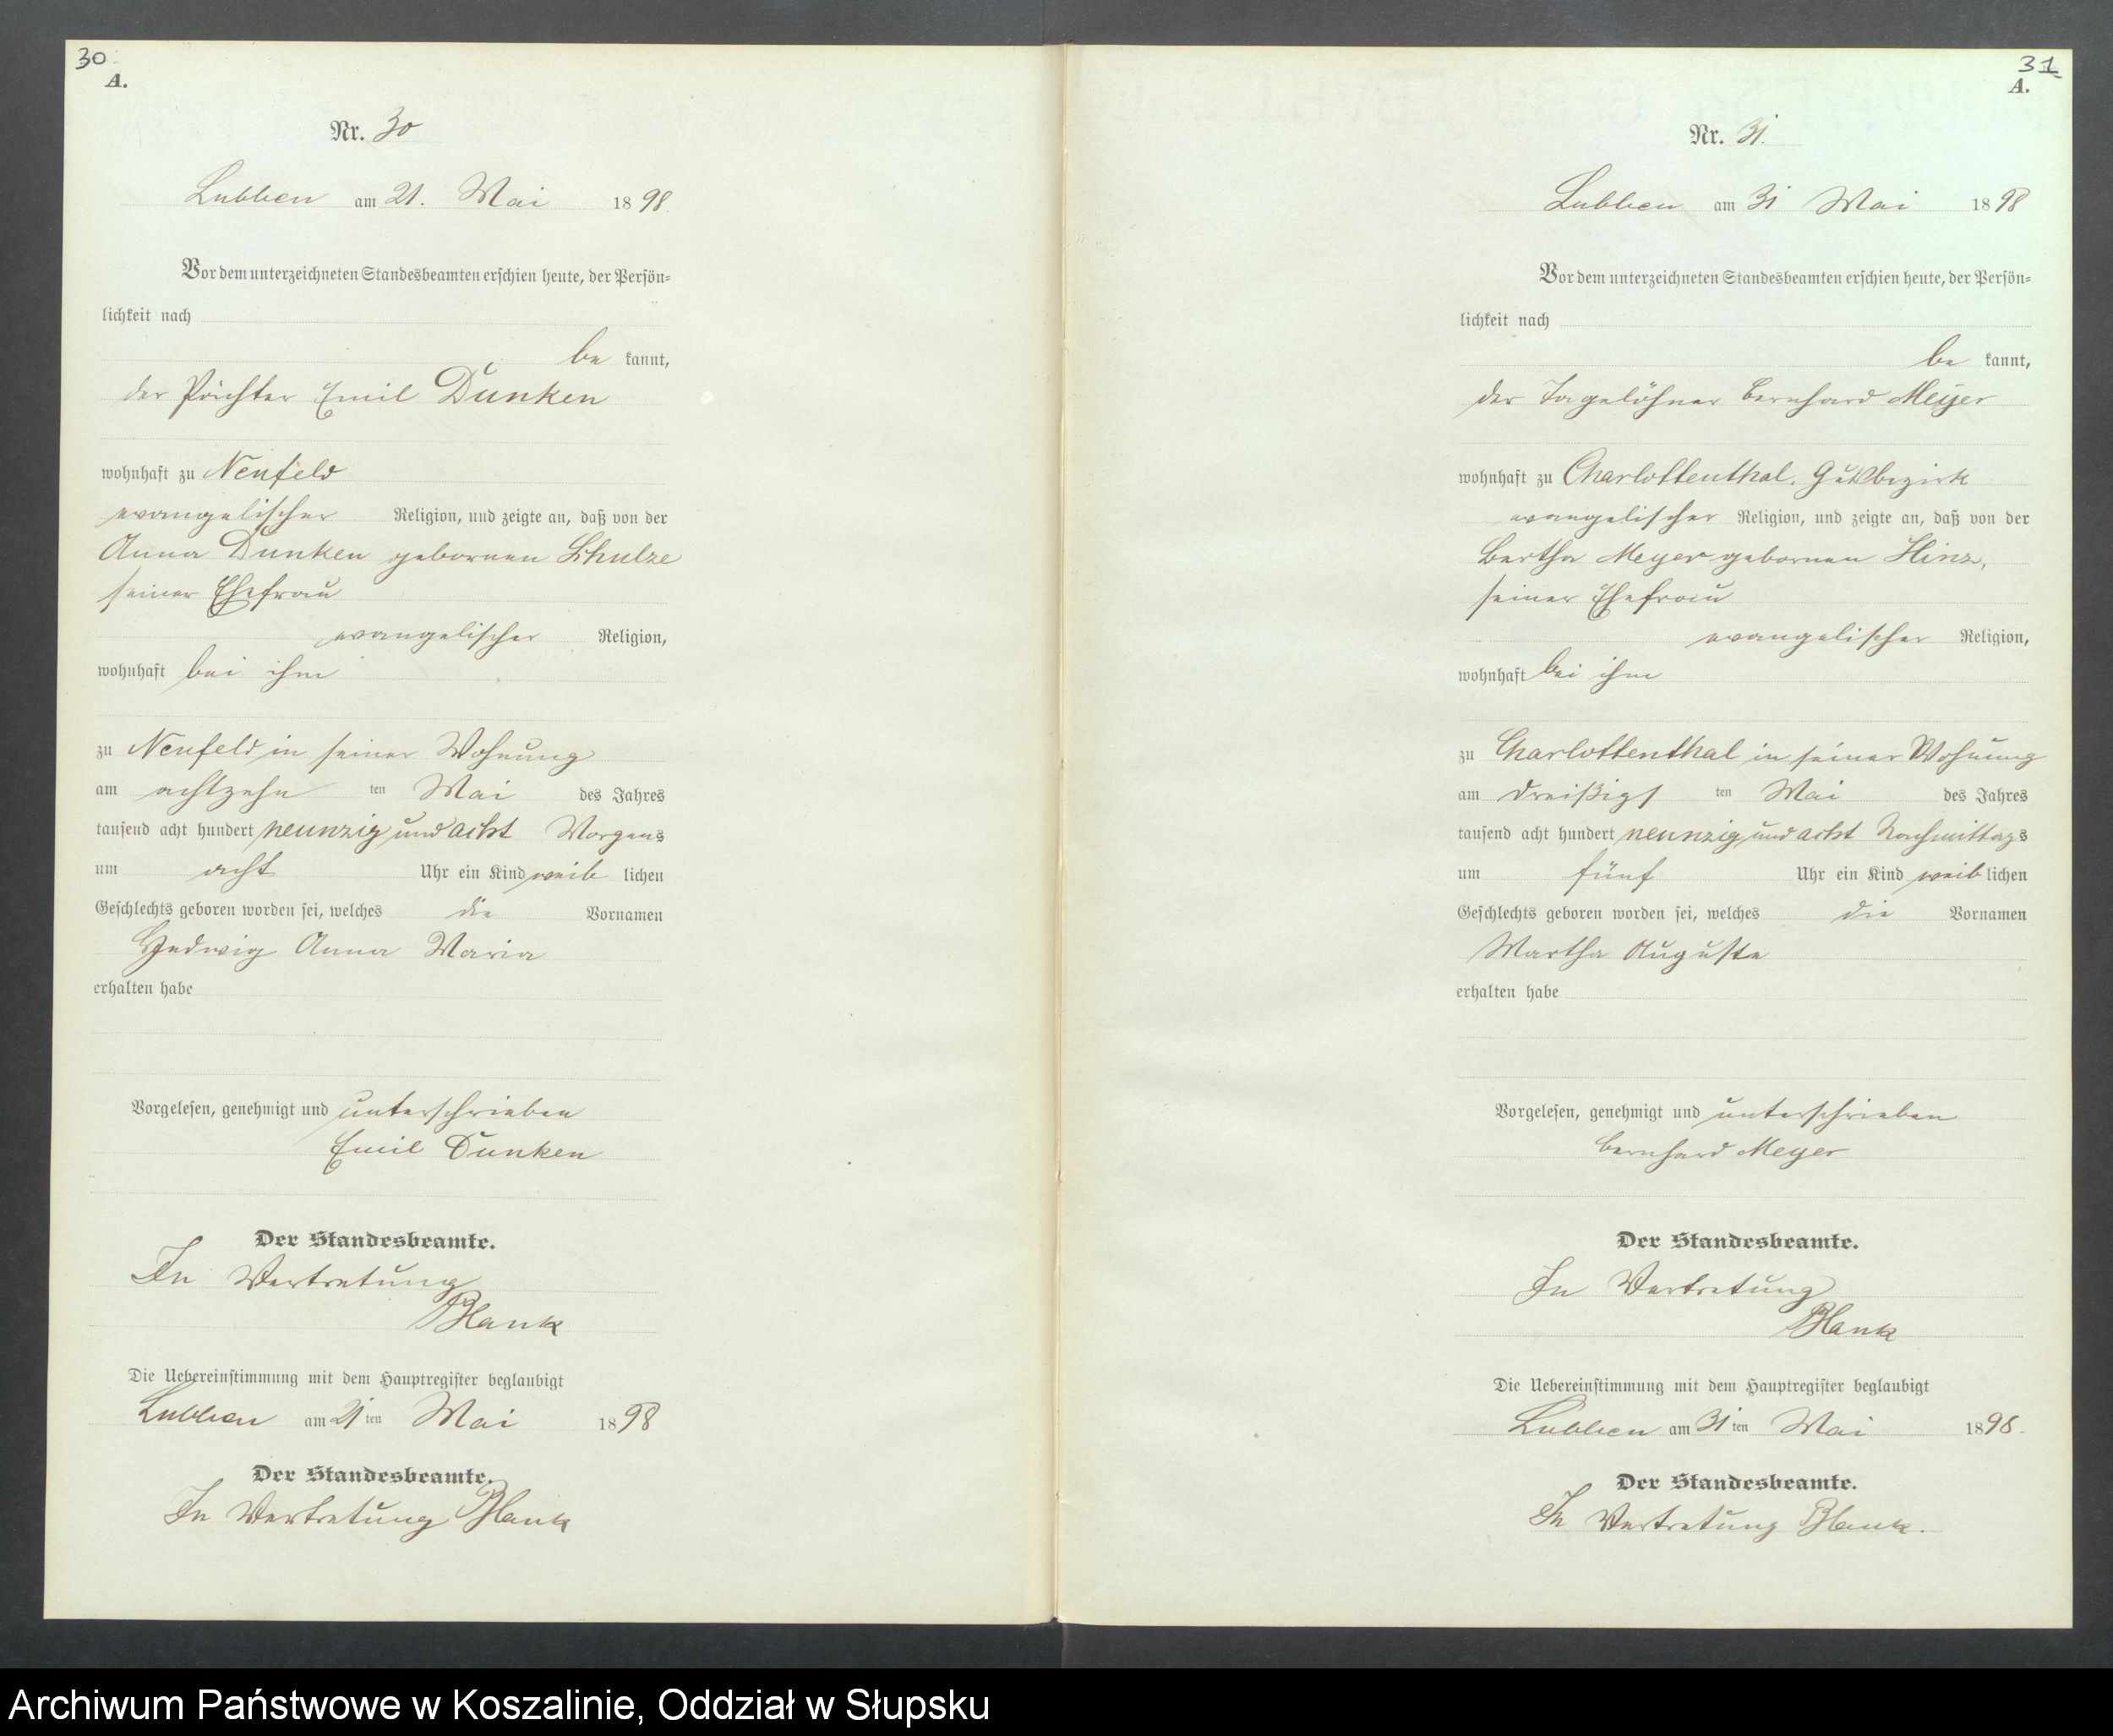 30
A.
Nr. 30
Lubben am 21. Mai 1898.
Vor dem unterzeichneten Standesbeamten erschien heute, der Persön-
lichkeit nach
be kannt,
der Pächter Emil Dunken
wohnhaft zu Neufeld
evangelischer Religion, und zeigte an, daß von der
Anna Dunken gebornen Schulze
seiner Ehefrau
evangelischer Religion,
wohnhaft bei ihm
zu Neufeld in seiner Wohnung
am achtzehn ten Mai des Jahres
tausend acht hundert neunzig und acht Morgens
um acht Uhr ein Kind weib lichen
Geschlechts geboren worden sei, welches die Vornamen
Hedwig Anna Maria
erhalten habe
Vorgelesen, genehmigt und unterschrieben
Emil Dunken
Der Standesbeamte.
In Vertretung
Blank
Die Uebereinstimmung mit dem Hauptregister beglaubigt
Lubben am 21 ten Mai 1898
Der Standesbeamte.
In Vertretung Blank
31
A.
Nr. 31.
Lubben am 31 Mai 1898
Vor dem unterzeichneten Standesbeamten erschien heute, der Persön-
lichkeit nach
be kannt,
der Tagelöhner Bernhard Meyer
wohnhaft zu Charlottenthal, Gutsbezirk
evangelischer Religion, und zeigte an, daß von der
Bertha Meyer gebornen Hinz,
seiner Ehefrau
evangelischer Religion,
wohnhaft bei ihm
zu Charlottenthal in seiner Wohnung
am dreißigs ten Mai des Jahres
tausend acht hundert neunzig und acht Nachmittags
um fünf Uhr ein Kind weib lichen
Geschlechts geboren worden sei, welches die Vornamen
Martha Auguste
erhalten habe
Vorgelesen, genehmigt und unterschrieben
Bernhard Meyer
Der Standesbeamte.
In Vertretung
Blank
Die Uebereinstimmung mit dem Hauptregister beglaubigt
Lubben am 31 ten Mai 1898.
Der Standesbeamte.
In Vertretung Blank.
Archiwum Państwowe w Koszalinie, Oddział w Słupsku